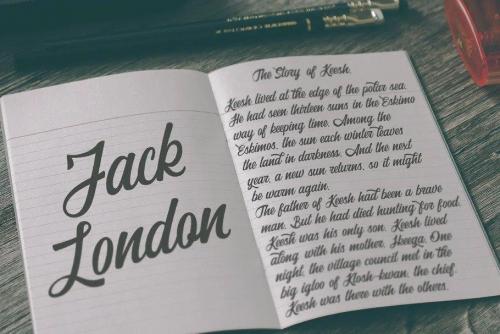 Jack
London
The Story of Keesh.
Keesh lived at the edge of the polar sea.
He had seen thirteen suns in the Eskimo
way of keeping time. Among the
Eskimos, the sun each winter leaves
the land in darkness. And the next
year, a new sun returns, so it might
be warm again.
The father of Keesh had been a brave
man. But he had died hunting for food.
Keesh was his only son. Keesh lived
along with his mother, Ikeega. One
night, the village council met in the
big igloo of Klosh-kwan, the chief.
Keesh was there with the others.